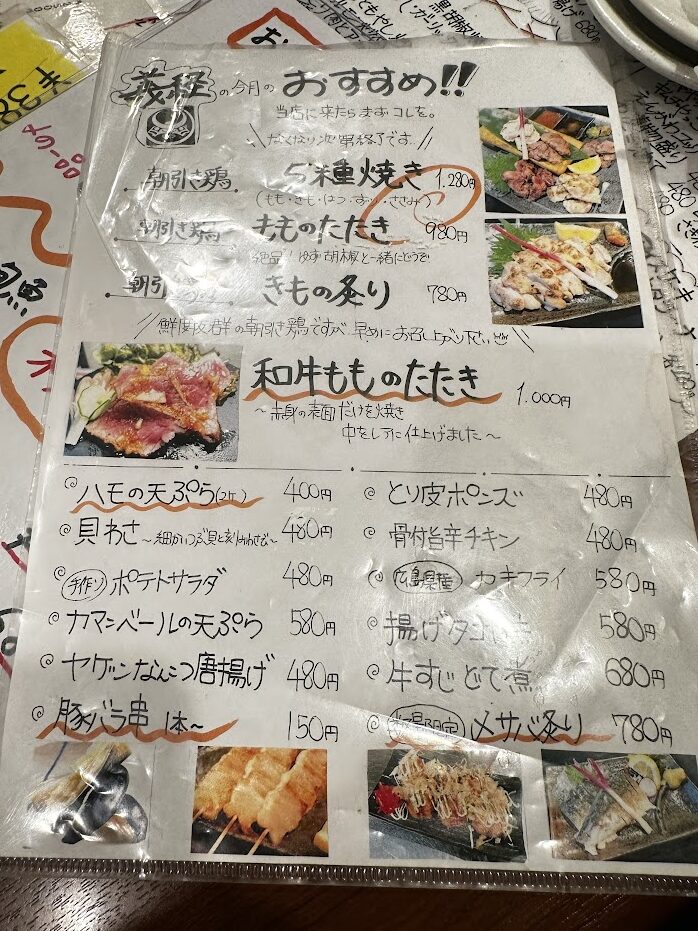 義経の今月のおすすめ!!
当店に来たらまずコレを。
なくなり次第終了です
朝引き鶏 5種焼き 1.280円
(もも・きも・はつ・ずり・ささみ)
朝引き鶏 もものたたき 980円
絶品!ゆず胡椒と一緒にどうぞ
朝引 きもの炙り 780円
鮮度抜群の朝引き鶏ですが、早めにお召し上がり下さい
和牛もものたたき 1.000円
～赤身の表面だけを焼き
中をレアに仕上げました～
ハモの天ぷら(2ケ) 400円
貝わさ～細かいつぶ貝と刻みわさび～ 480円
手作り ポテトサラダ 480円
カマンベールの天ぷら 580円
ヤゲンなんこつ唐揚げ 480円
豚バラ串 1本～ 150円
とり皮ポンズ 480円
骨付旨辛チキン 480円
広島県産 カキフライ 580円
揚げタコ 580円
牛すじどて煮 680円
限定 〆サバ炙り 780円